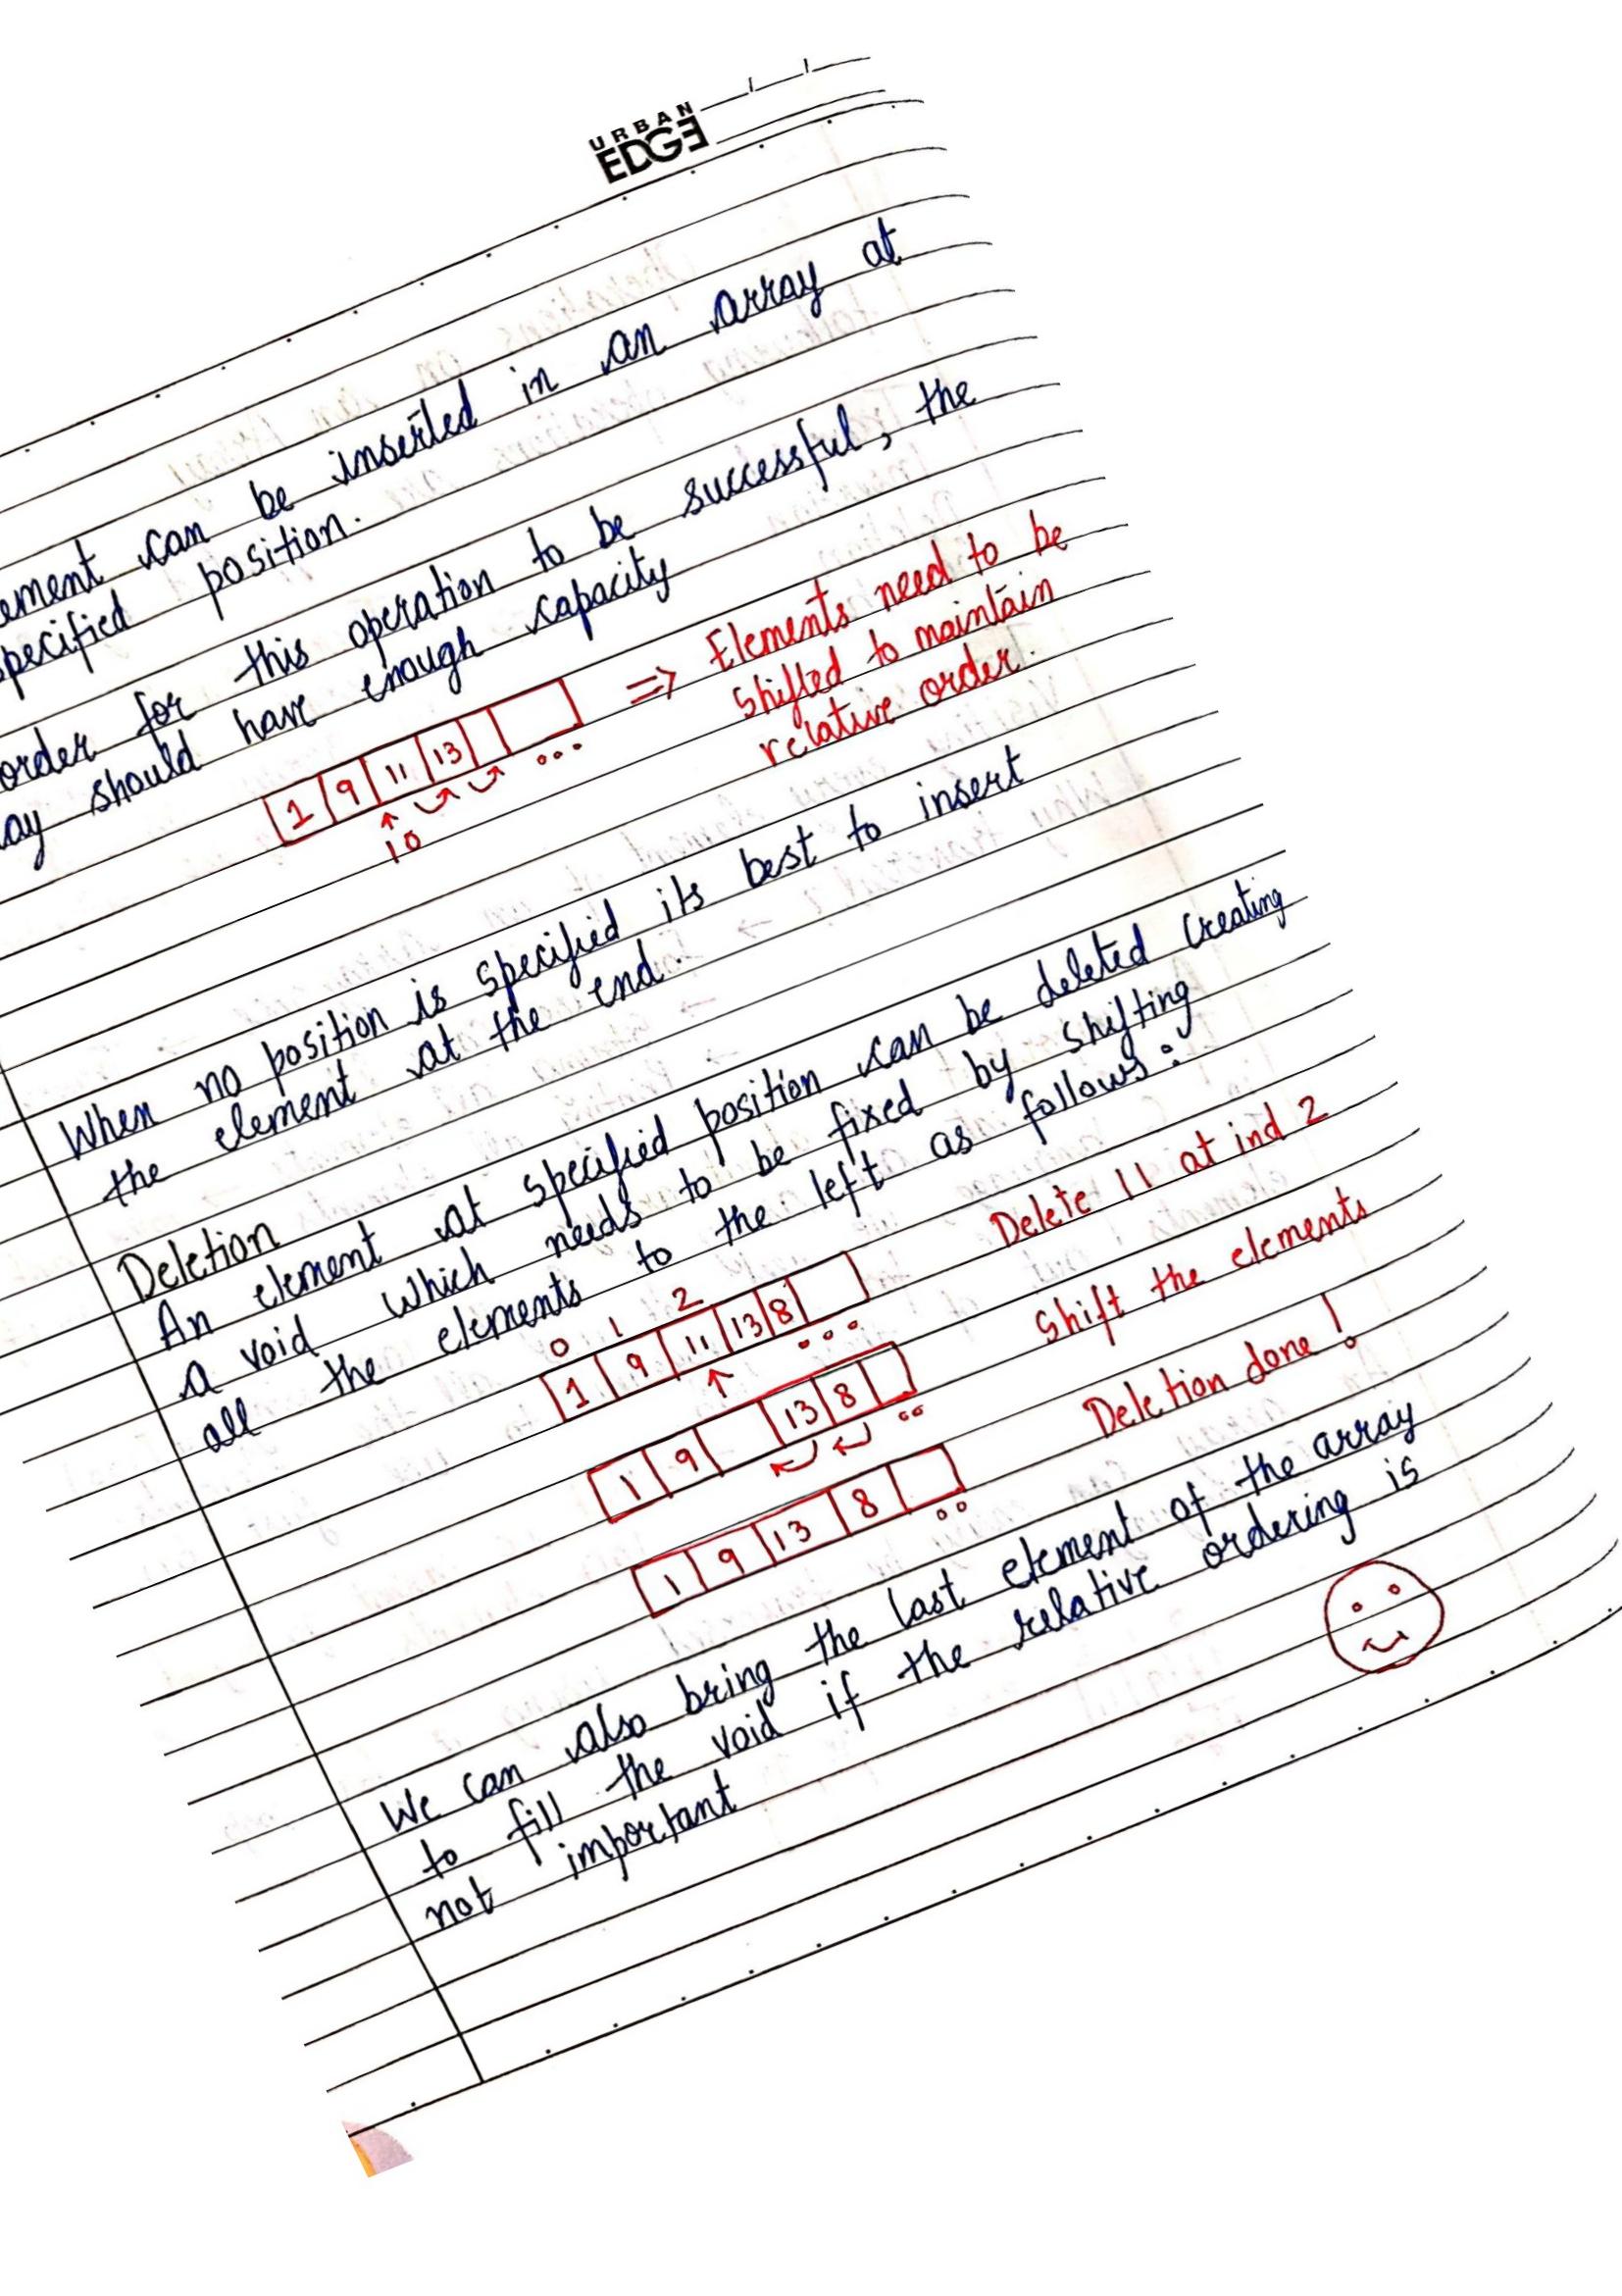 URBAN
EDGE
ement can be inserted in an array at
specified position.
order for this operation to be successful, the
ay should have enough capacity
1 9 11 13
10
...
⇒ Elements need to be
shifted to maintain
relative order.
When no position is specified its best to insert
the element at the end.
Deletion
An element at specified position can be deleted creating
a void which needs to be fixed by shifting
all the elements to the left as follows:
0 1 2
1 9 11 13 8
...
Delete 11 at ind 2
1 9 13 8
..
Shift the elements
1 9 13 8
..
Deletion done!
We can also bring the last element of the array
to fill the void if the relative ordering is
not important